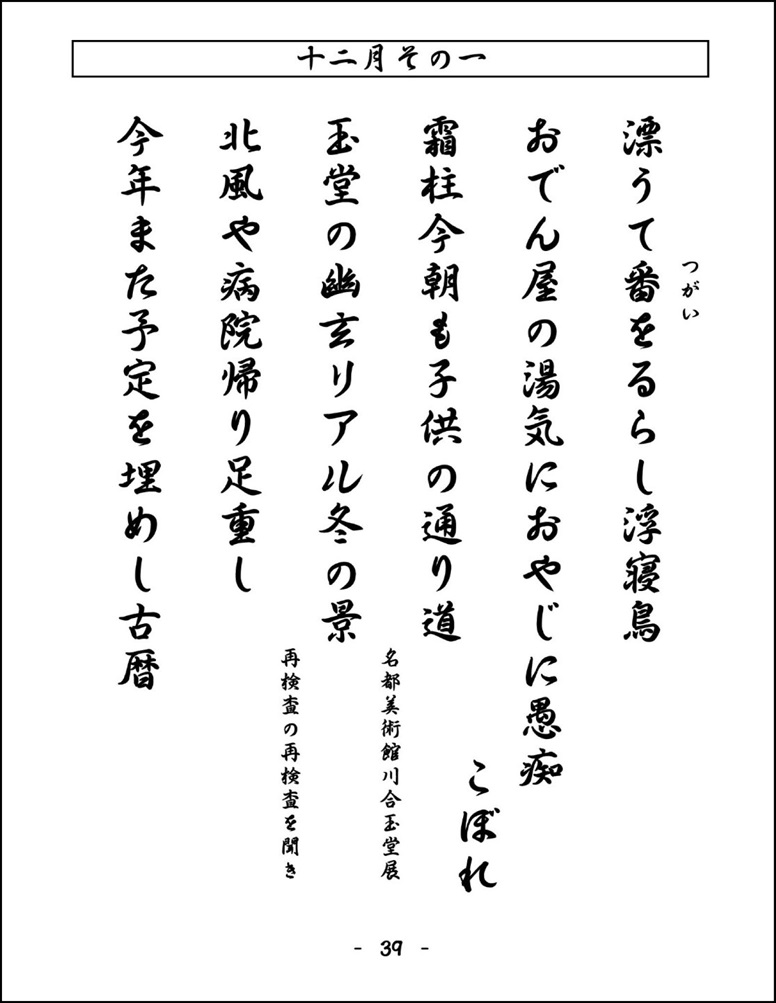 十二月その一
漂うて番をるらし浮寝鳥
つがい
おでん屋の湯気におやじに愚痴
こぼれ
霜柱今朝も子供の通り道
玉堂の幽玄リアル冬の景
名都美術館川合玉堂展
北風や病院帰り足重し
再検査の再検査を聞き
今年また予定を埋めし古暦
- 39 -